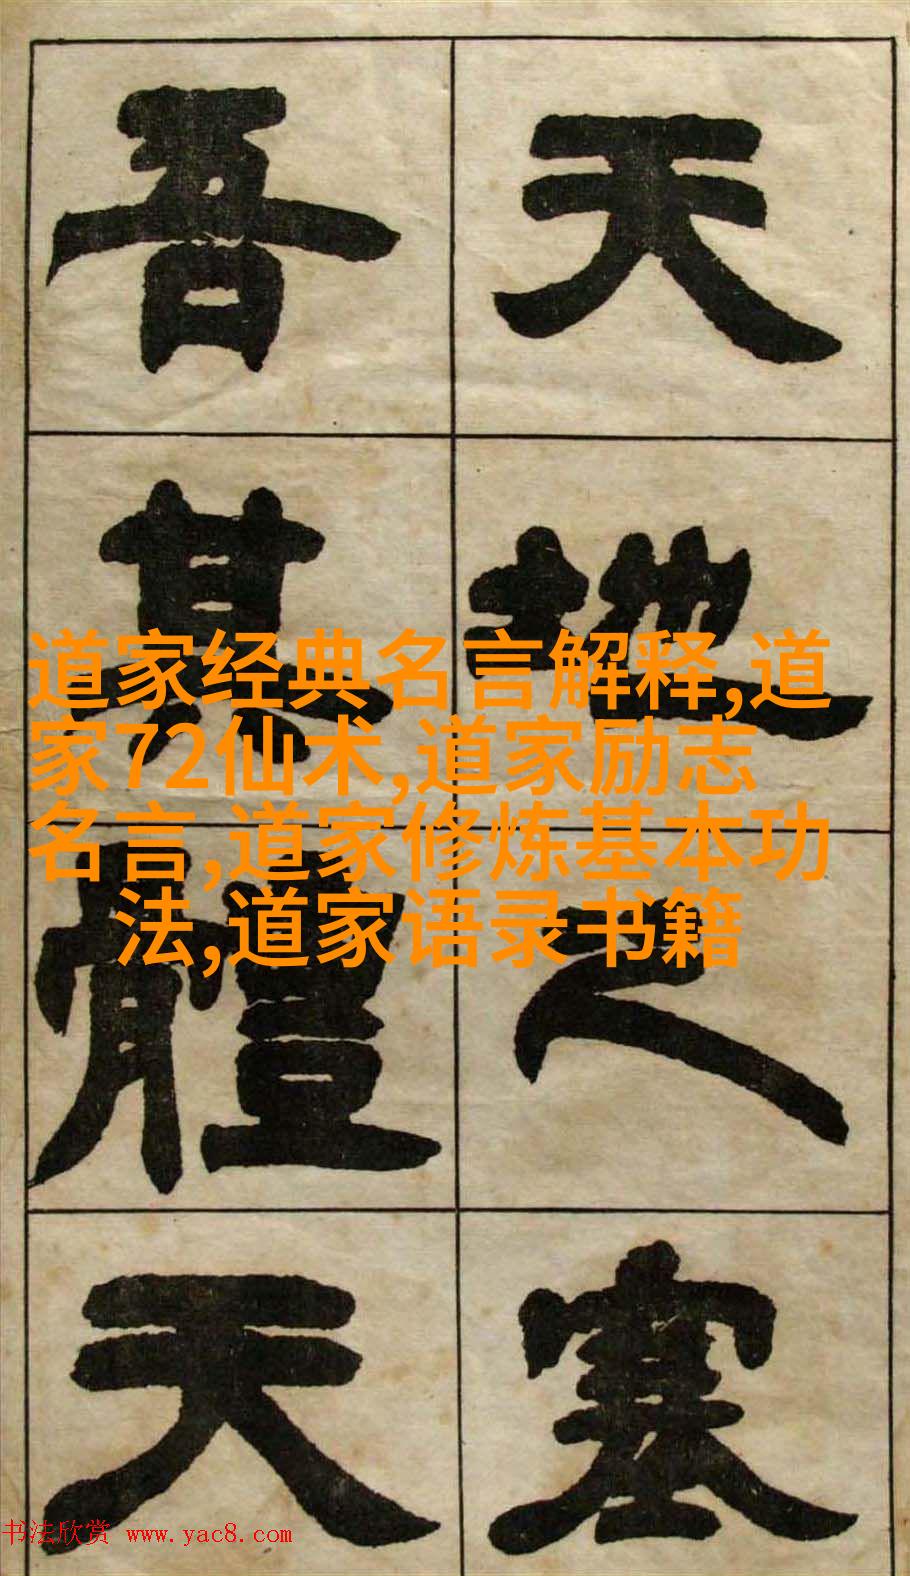 天地之塞
吾其體天
道家经典名言解释,道
家72仙术,道家励志
名言,道家修炼基本功
法,道家语录书籍
书法欣赏 www.yac8.com